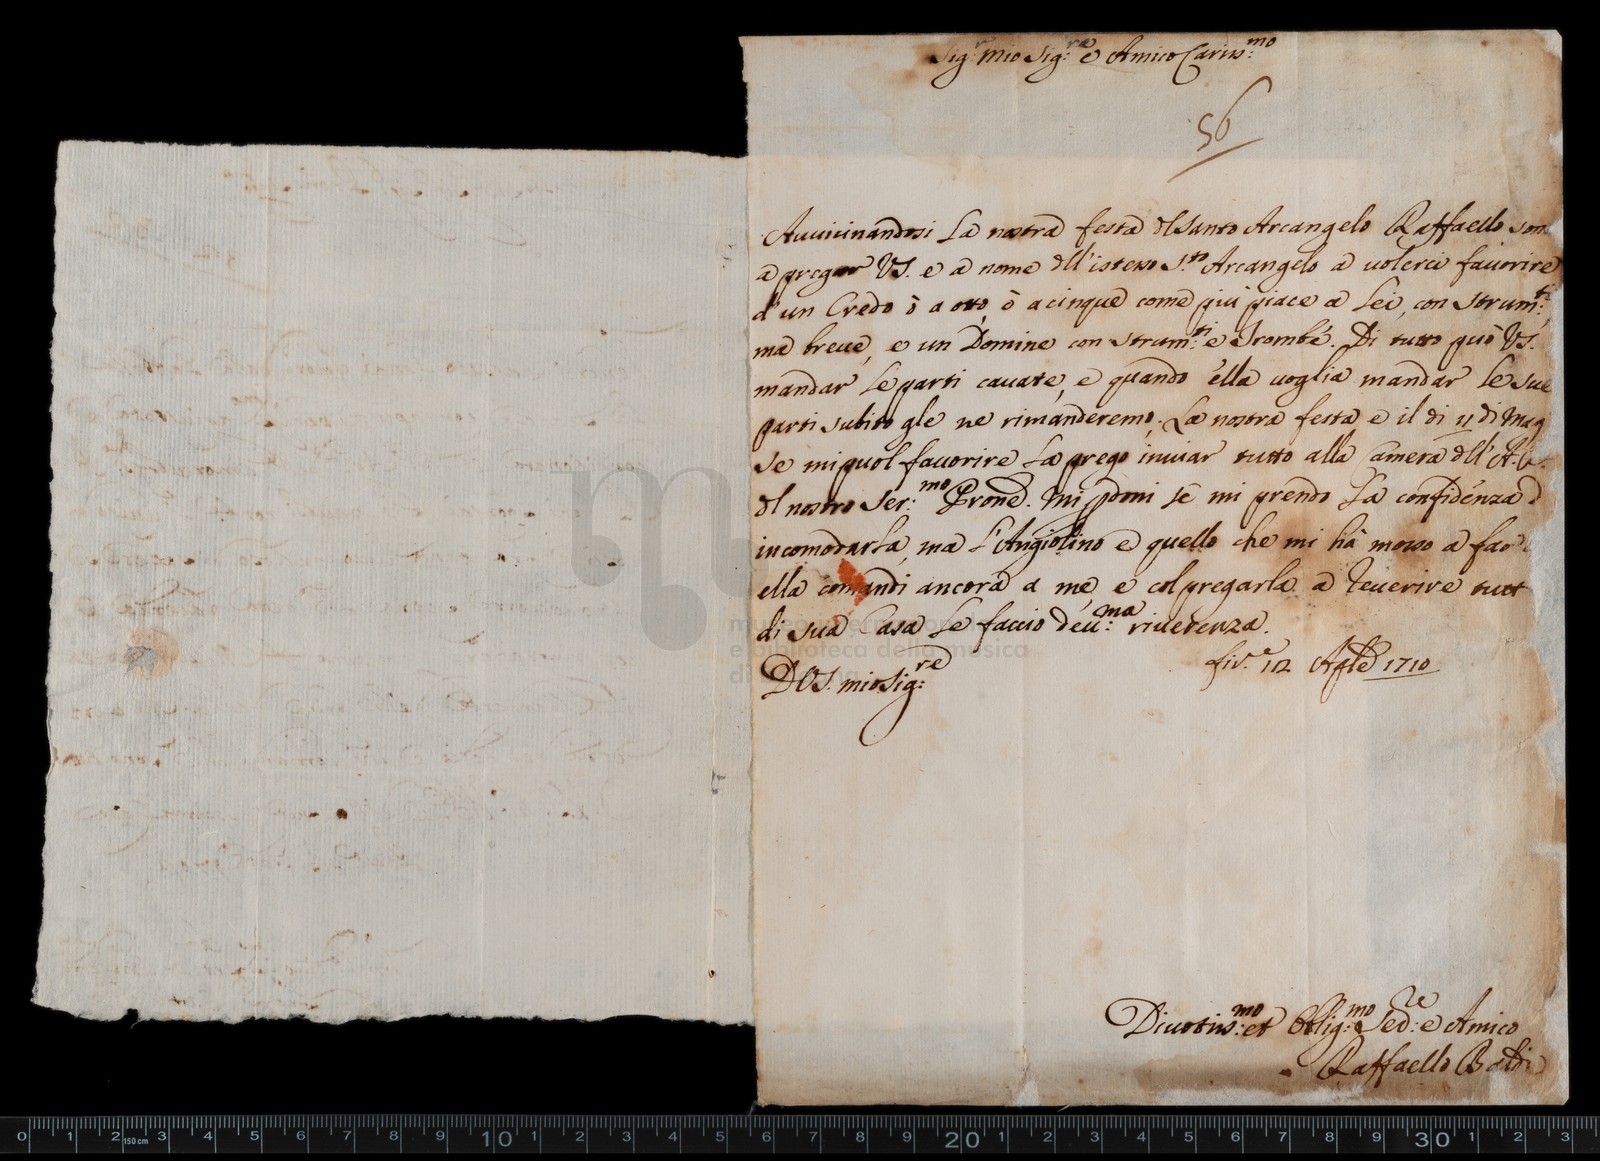 Sig.r Mio Sig.re e Amico Cariss.mo
56
Auuicinandosi la nostra festa dl Santo Arcangelo Raffaello son
a pregar VS. e a nome dll'istesso S.to Arcangelo a uolerci fauorire
d'un Credo ò a otto, ò a cinque come piu piace a lei, con strum.ti,
ma breue, e un Domine con strum.ti e Trombe. Di tutto può VS.
mandar le parti cauate, e quando ella uoglia mandar le sue
parti subito gle ne rimanderemo. La nostra festa e il di 11 di Mag
se mi puol fauorire la prego inuiar tutto alla Camera dll'A.
dl nostro Ser.mo Prone. Mi pdoni se mi prendo la confidenza d
incomodarla, ma l'Angiolino e quello che mi hà mosso a far
ella comandi ancora a me, e col pregarla a reuerire tutt
di sua Casa le faccio deu.ma riuerenza.
D VS. mio Sig.re
Fir.e 12 Aple 1710
Diuotiss.mo et Oblig.mo Sed.re e Amico
Raffaello Baldi
museo internazionale
e biblioteca della musica
di
0 1 2 150 cm 3 4 5 6 7 8 9 10 1 2 3 4 5 6 7 8 9 20 1 2 3 4 5 6 7 8 9 30 1 2 3